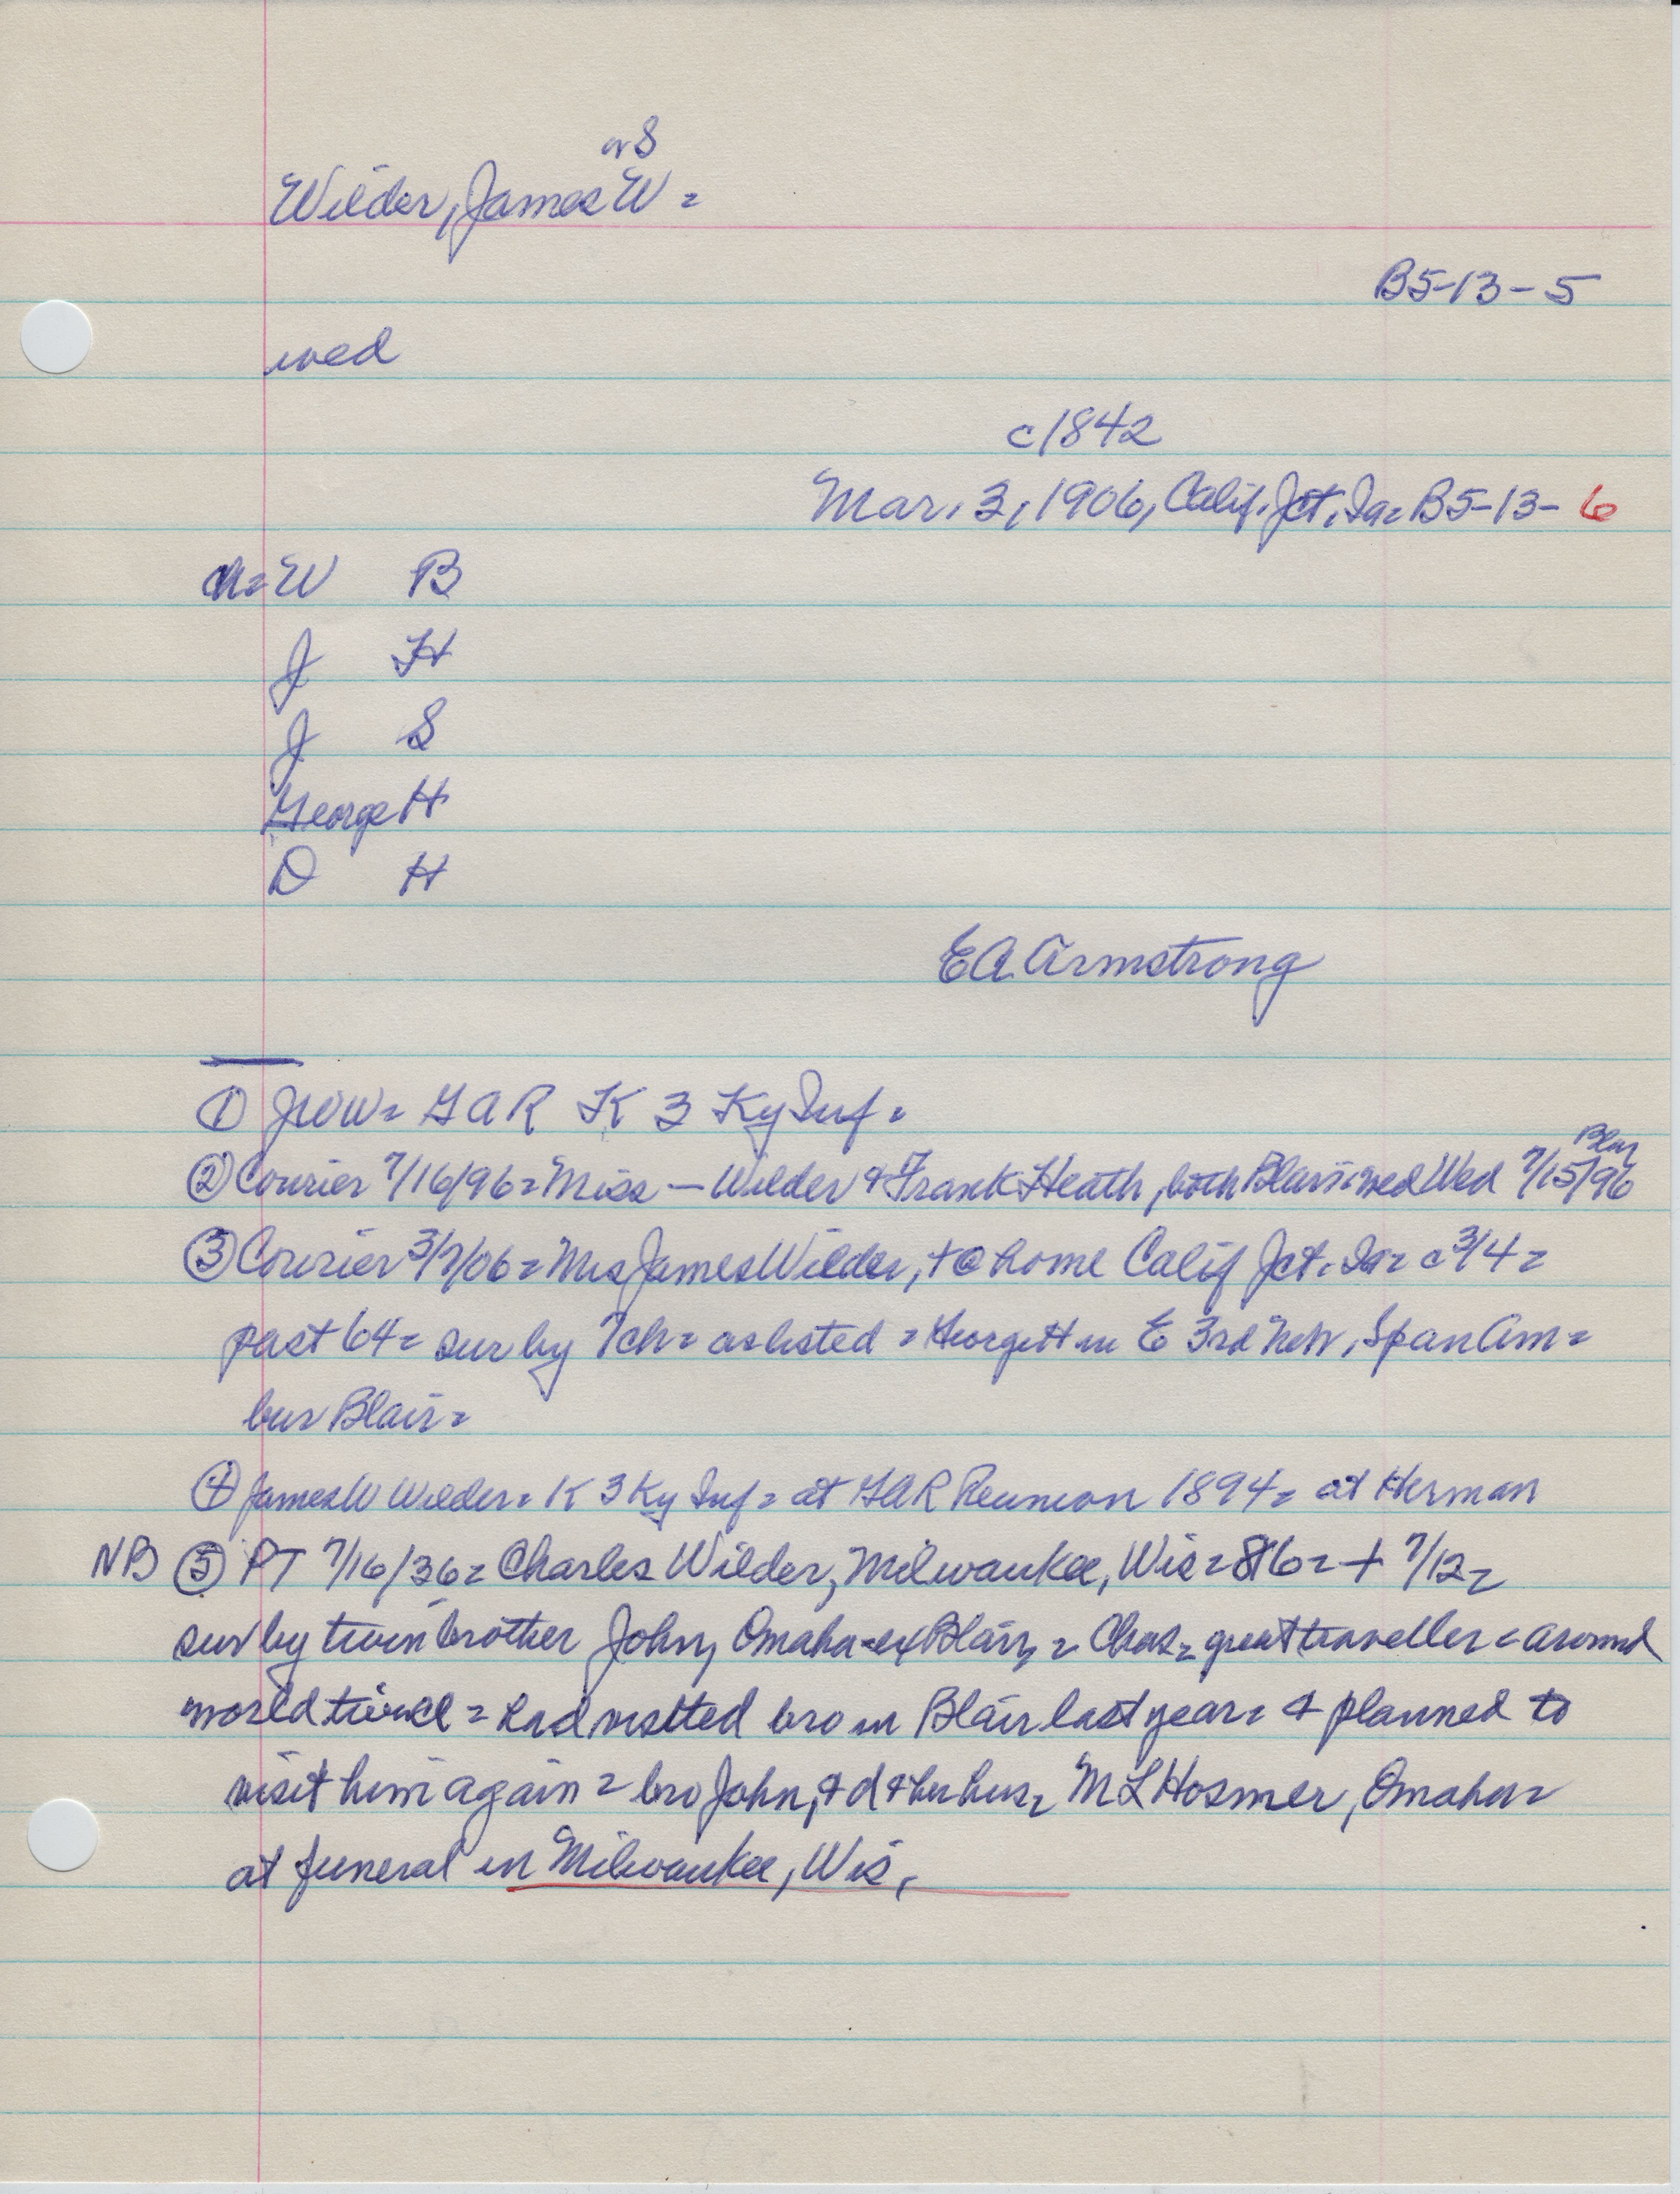 or S
Wilder, James W =
B5-13-5
wed
c1842
Mar. 3, 1906, Calif. Jct. Ia = B5-13-6
ch = W B
J H
J S
George H
D H
EA Armstrong
① JWW = GAR K 3 Ky Inf =
Blair
② Courier 7/16/96 = Miss — Wilder & Frank Heath, both Blair = wed Wed 7/15/96
③ Courier 3/7/06 = Mrs James Wilder, + @ home Calif Jct. Ia = c 3/4 =
past 64 = sur by 7 ch = as listed = George H in E 3rd Neb, Span Am =
bur Blair =
④ James W Wilder = K 3 Ky Inf = at GAR Reunion 1894 = at Herman
NB ⑤ PT 7/16/36 = Charles Wilder, Milwaukee, Wis = 86 = + 7/12 =
sur by twin brother John, Omaha - ex Blair, = Chas = great traveller = around
world twice = had visited bro in Blair last year = & planned to
visit him again = bro John, & d & her hus, M L Hosmer, Omaha =
at funeral in Milwaukee, Wis.